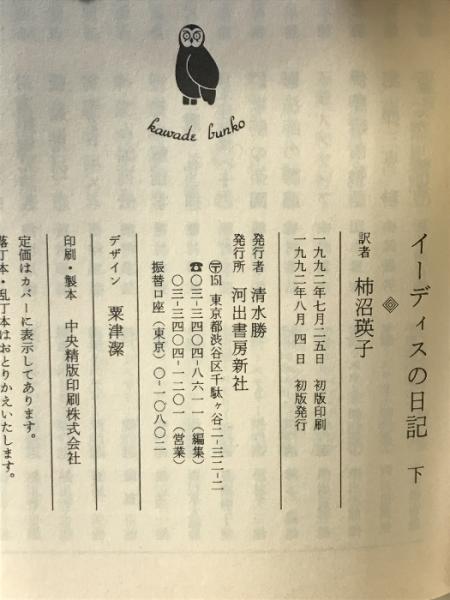 kawade bunko
イーディスの日記 下
訳者 柿沼瑛子
一九九二年七月二五日 初版印刷
一九九二年八月 四日 初版発行
発行者 清水勝
発行所 河出書房新社
〒151 東京都渋谷区千駄ヶ谷二-三二-二
☎〇三-三四〇四-八六一一(編集)
〇三-三四〇四-一二〇一(営業)
振替口座(東京)〇-一〇八〇二
デザイン 粟津潔
印刷・製本 中央精版印刷株式会社
定価はカバーに表示してあります。
落丁本・乱丁本はおとりかえいたします。